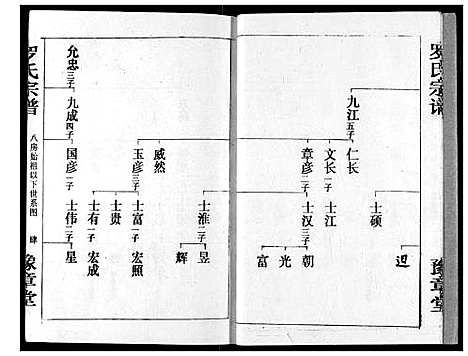 罗氏宗谱
豫章堂
九江 五子
仁长
文长 一子
章彦 二子
士硕
士江
士汉 三子
迟
朝
光
富
允忠 三子
九成 四子
威然
玉彦 三子
国彦 二子
士淮 二子
士富 一子
士贵
士有 一子
士伟 二子
昱
辉
宏照
宏成
星
罗氏宗谱
八房始祖以下世系图
肆
豫章堂